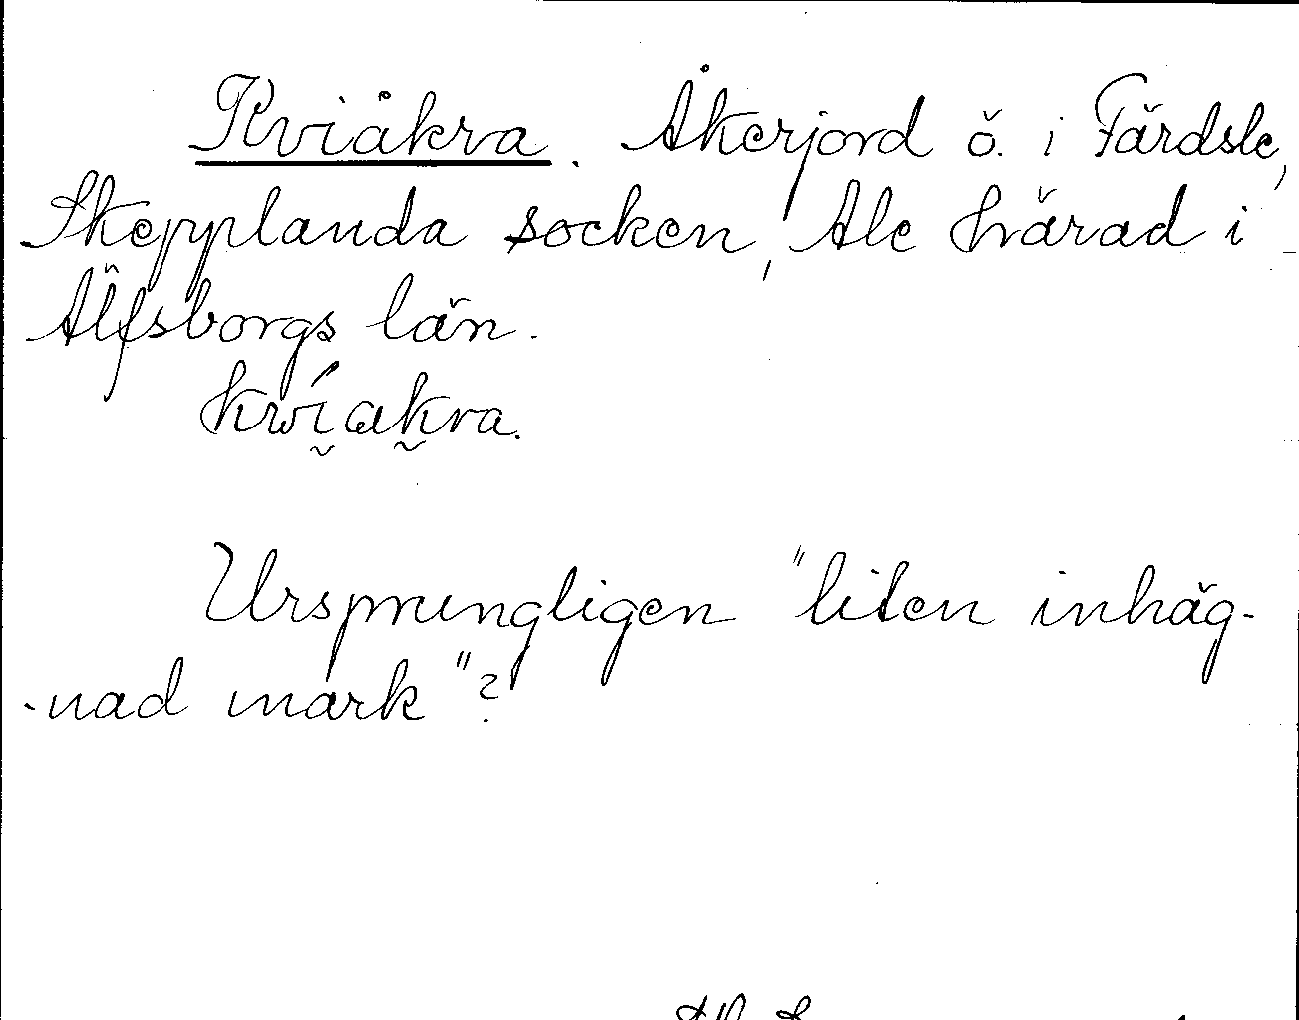 Kviåkra. Åkerjord ö. i Färdsle,
Skepplanda socken, Ale härad i
Älfsborgs län.
kwíakra.
Ursprungligen "liten inhäg-
-nad mark"?